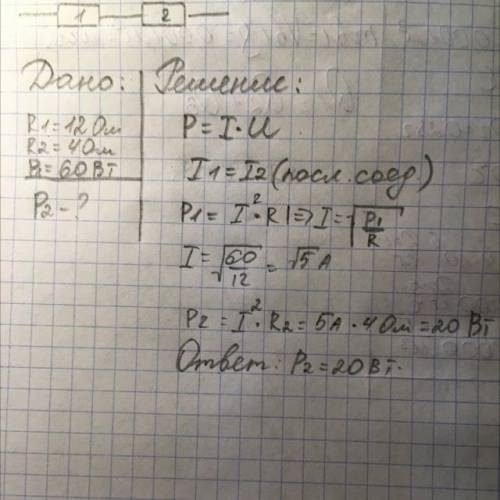 1 2
Дано:
R1=12 Ом
R2=4 Ом
P1=60 Вт
P2-?
Решение:
P=I·U
I1=I2 (посл. соед.)
P1= I²·R1=>I=√P1/R
I=√60/12=√5 A
P2=I²·R2=5A·4 Ом=20 Вт
Ответ: P2=20 Вт.